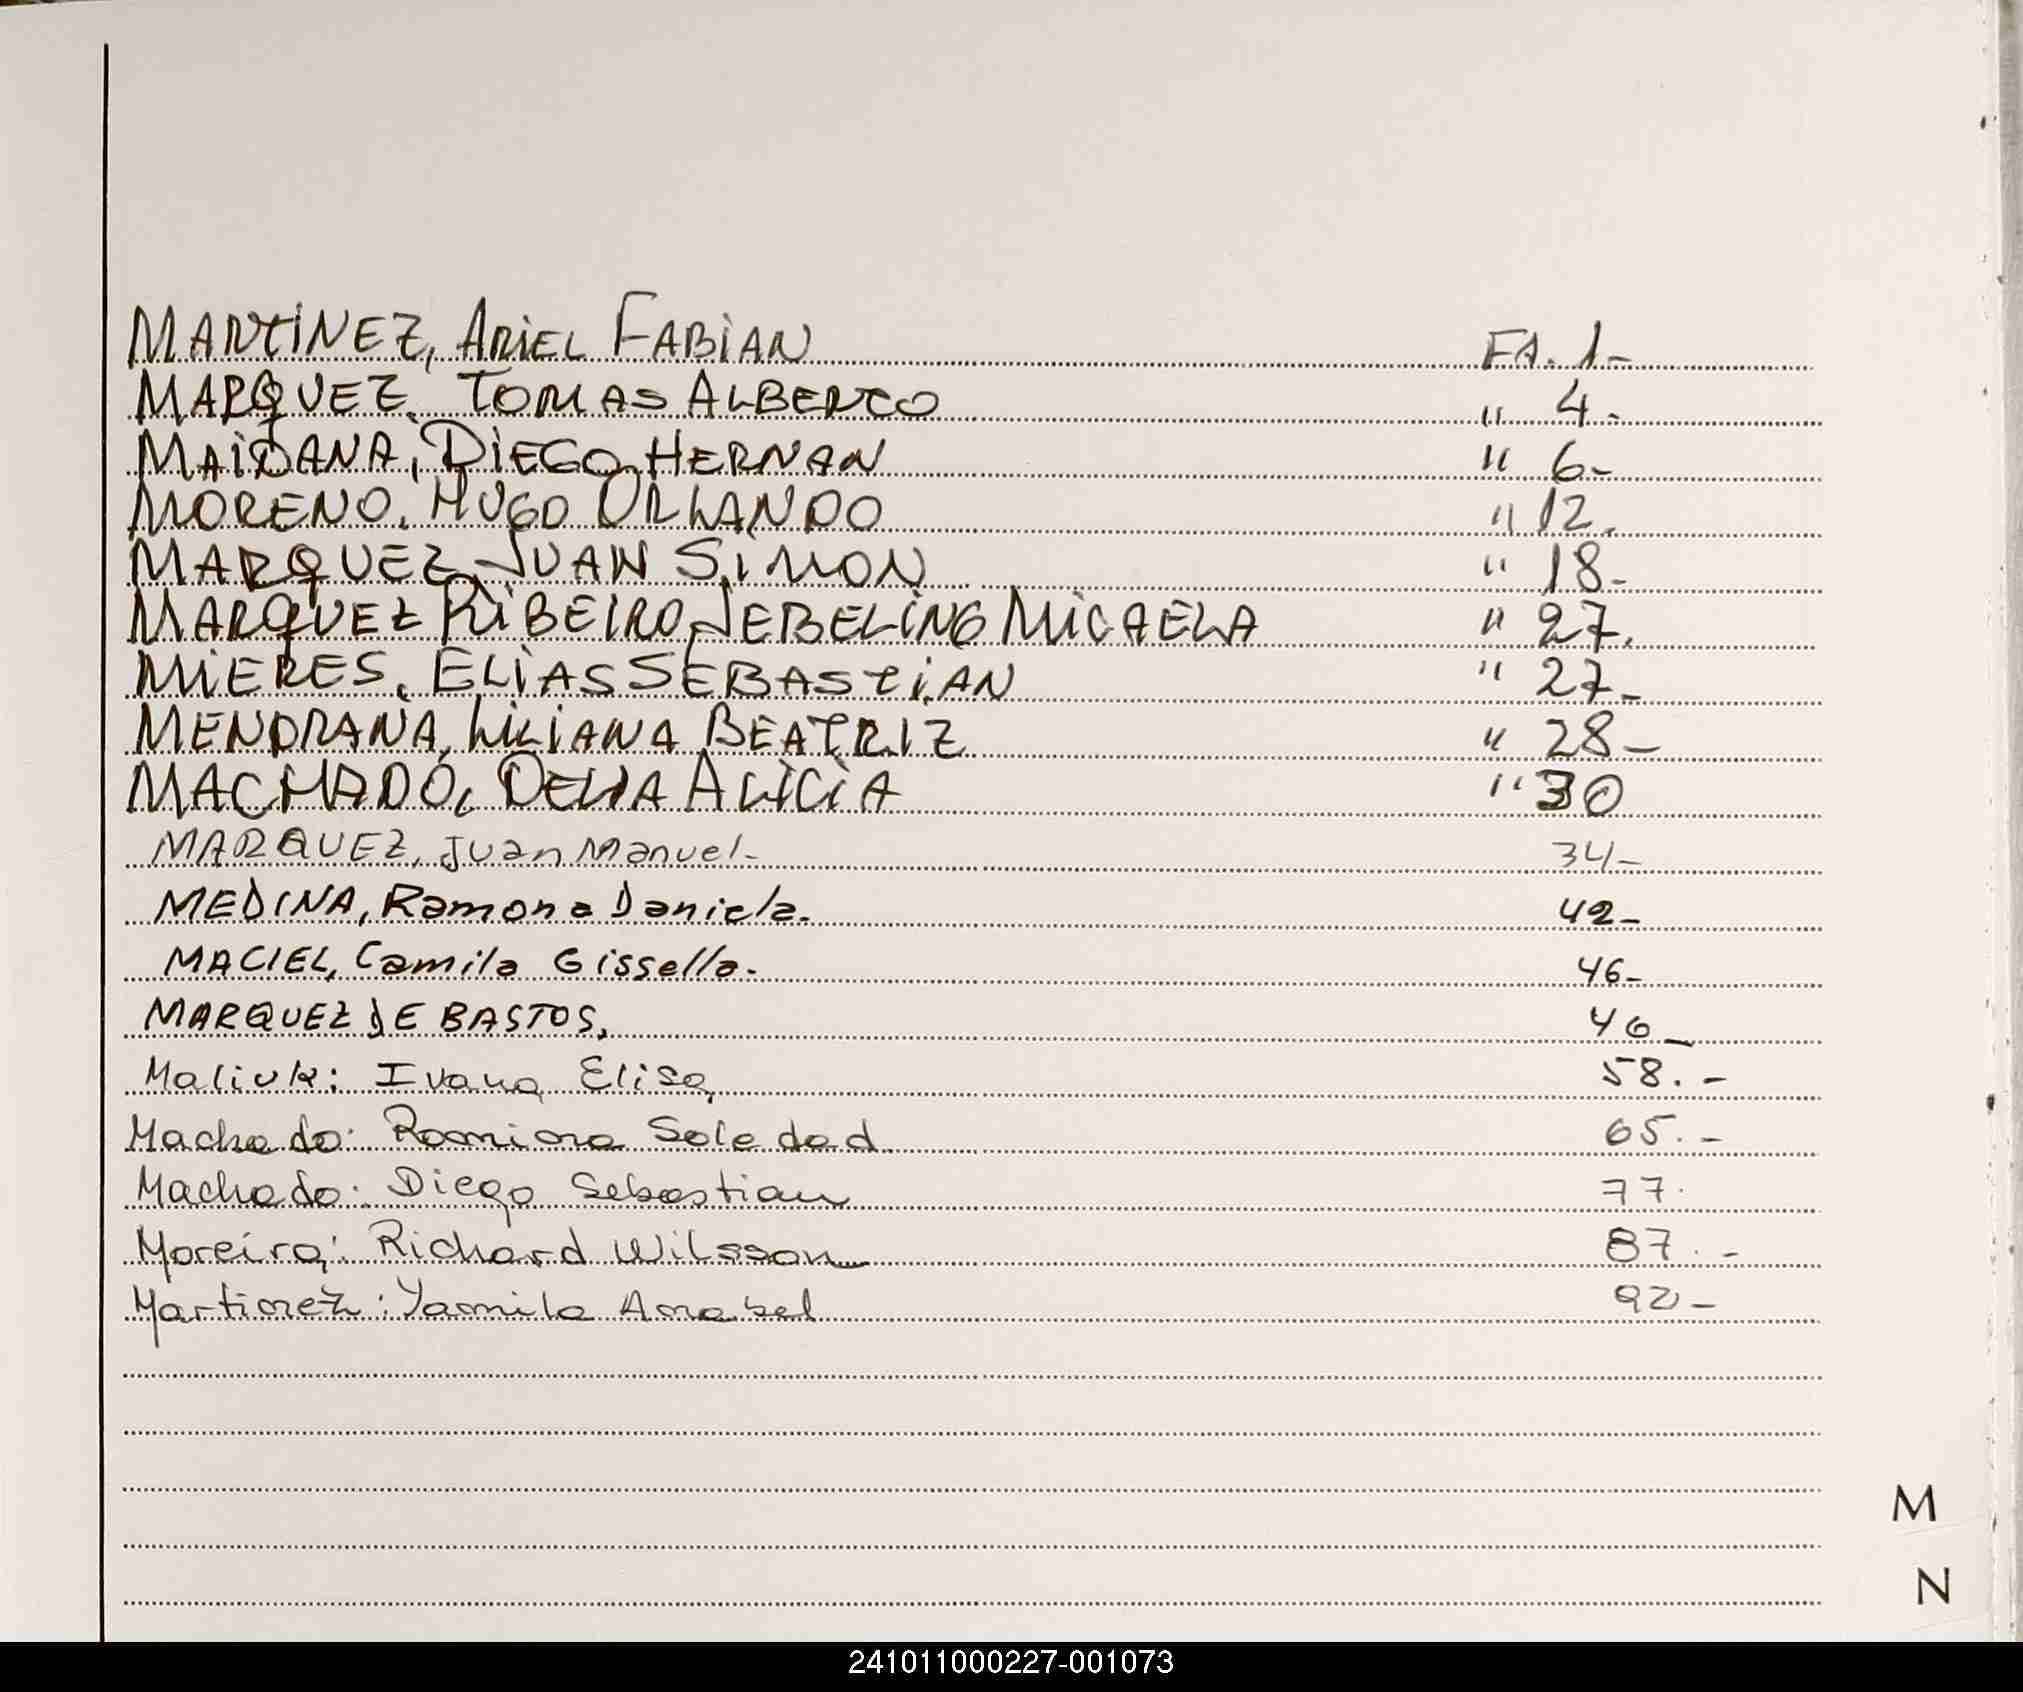 MARTINEZ, ARIEL FABIAN FA. 1-
MARQUEZ, TOMAS ALBERTO " 4-
MAIDANA, DIEGO HERNAN " 6-
MORENO, HUGO ORLANDO " 12.
MARQUEZ JUAN SIMON " 18-
MARQUEZ RIBEIRO, JEBELING MICAELA " 27.
MIERES, ELIAS SEBASTIAN " 27-
MENDRANA, LILIANA BEATRIZ " 28-
MACHADO, DELIA ALICIA " 30
MARQUEZ, Juan Manuel- 34-
MEDINA, Ramona Daniela. 42-
MACIEL, Camila Gissella. 46-
MARQUEZ DE BASTOS, 46-
Maliuk: Ivana Elisa 58.-
Machado: Romina Soledad 65.-
Machado: Diego Sebastian 77.
Moreira: Richard Wilsson 87.-
Martinez: Yamila Anabel 92-
M
N
241011000227-001073